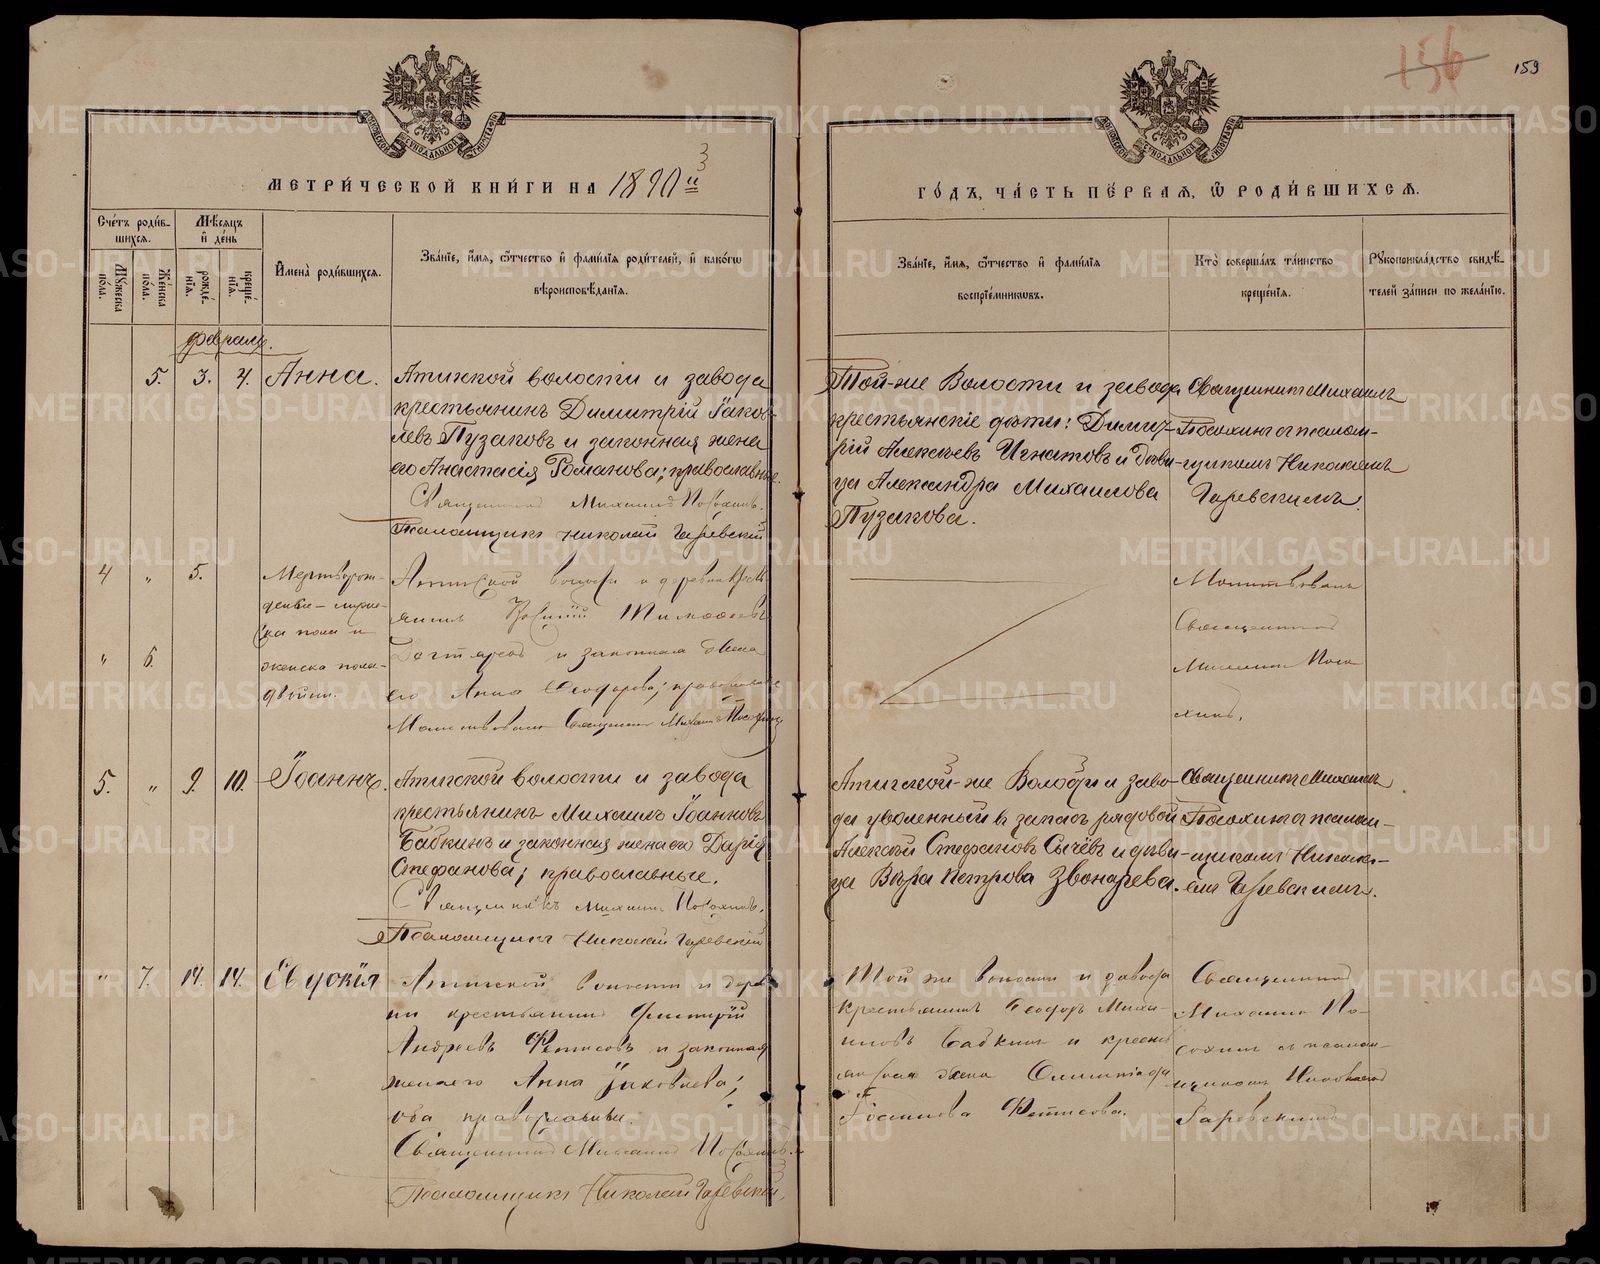 156
159
МЕТРИ́ЧЕСКОЙ КНИ́ГИ НА 1890й
ГО́ДЪ, ЧА́СТЬ ПЕ́РВАЯ, Ѿ РОДИ́ВШИХСЯ.
Сче́тъ роди́в-
шихся.
Мѣ́сяцъ
и҆ де́нь
Му́жеска
по́ла.
Же́нска
по́ла.
рожде́-
нїя.
креще́-
нїя.
И҆мена̀ роди́вшихся.
Зва́нїе, и҆́мя, ѻ҆́тчество и҆ фами́лїя роди́телей, и҆ како́гѡ
вѣроисповѣ́данїя.
Зва́нїе, и҆́мя, ѻ҆́тчество и҆ фами́лїя
воспрїе́мникѡвъ.
Кто̀ соверша́лъ та́инство
креще́нїя.
Рꙋкоприкла́дство свидѣ́-
телей за́писи по жела́нїю.
Февраль.
5. 3. 4. Анна.
Атигской волости и завода
крестьянинъ Димитрій Іаков-
левъ Пузаковъ и законная жена
его Анастасія Романова; православные.
Священникъ Михаилъ Посохинъ.
Псаломщикъ Николай Гаревскій
Той-же Волости и завода
крестьянскіе дѣти: Димит-
рій Алексѣевъ Игнатовъ и дѣви-
ца Александра Михаилова
Пузакова.
Священникъ Михаилъ
Посохинъ съ псалом-
щикомъ Николаемъ
Гаревскимъ.
4 " 5.
" 6.
Мертворож-
денные мужес-
ка пола и
женска пола-
двойни.
Атигской волости и деревни крест-
янинъ Тимофеевъ
и законная жена
его Анна Феодорова; православные
Молитвовалъ Священникъ Михаилъ Посохинъ
Молитвовалъ
Священникъ
Михаилъ Посо-
хинъ.
5. " 9. 10. Іоаннъ.
Атигской волости и завода
крестьянинъ Михаилъ Іоанновъ
Бабкинъ и законная жена его Дарія
Стефанова; православные.
Священникъ Михаилъ Посохинъ.
Псаломщикъ Николай Гаревскій
Атигской-же Волости и заво-
да уволенный въ запасъ рядовой
Алексѣй Стефановъ Сычёвъ и дѣви-
ца Вѣра Петрова Звонарева.
Священникъ Михаилъ
Посохинъ съ псалом-
щикомъ Никола-
емъ Гаревскимъ.
" 7. 14. 14. Евдокія
Атигской волости и дерев-
ни крестьянинъ Димитрій
Андреевъ Фетисовъ и законная
жена его Анна Іаковлева;
оба православные.
Священникъ Михаилъ Посохинъ
Псаломщикъ Николай Гаревскій.
Той же волости и завода
крестьянинъ Феодоръ Миха-
иловъ Бабкинъ и крестья-
янская жена Олимпіада
Фетисова.
Священникъ
Михаилъ По-
сохинъ съ псалом-
щикомъ Николаемъ
Гаревскимъ
METRIKI.GASO-URAL.RU